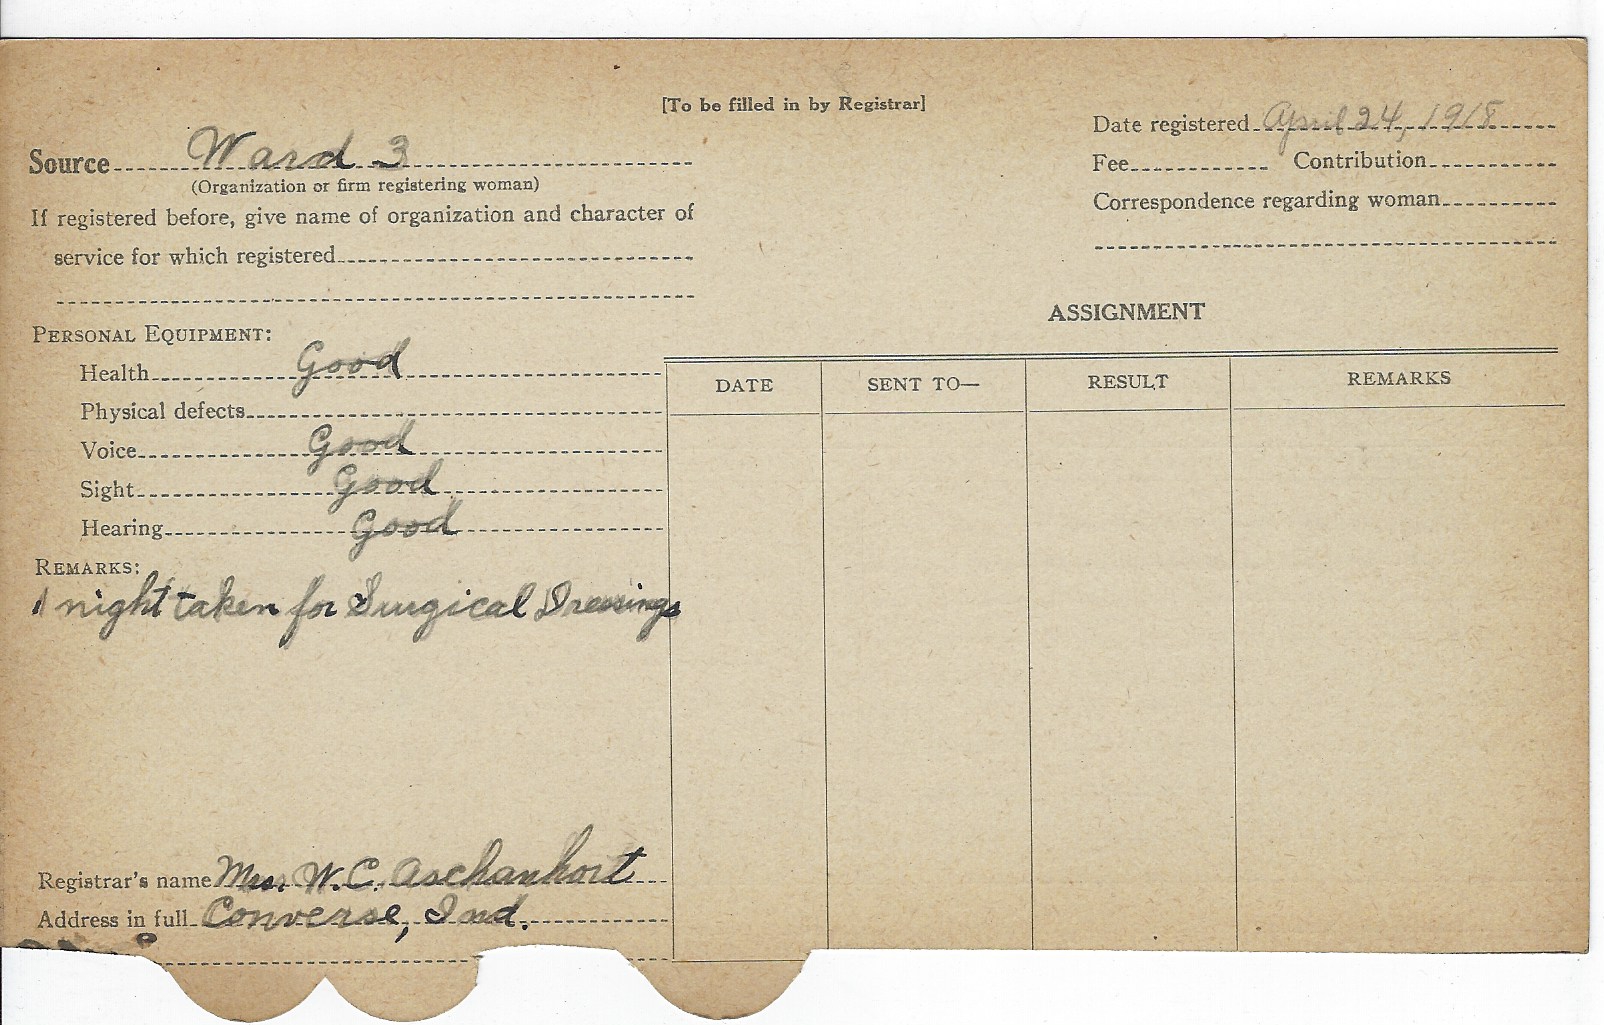 [To be filled in by Registrar]
Date registered April 24, 1918
Source Ward 3
(Organization or firm registering woman)
Fee Contribution
If registered before, give name of organization and character of
service for which registered
Correspondence regarding woman
ASSIGNMENT
PERSONAL EQUIPMENT:
Health Good
Physical defects
Voice Good
Sight Good
Hearing Good
DATE SENT TO— RESULT REMARKS
REMARKS:
1 night taken for Surgical Dressings
Registrar's name Mrs. W.C. Aschanhort
Address in full Converse, Ind.